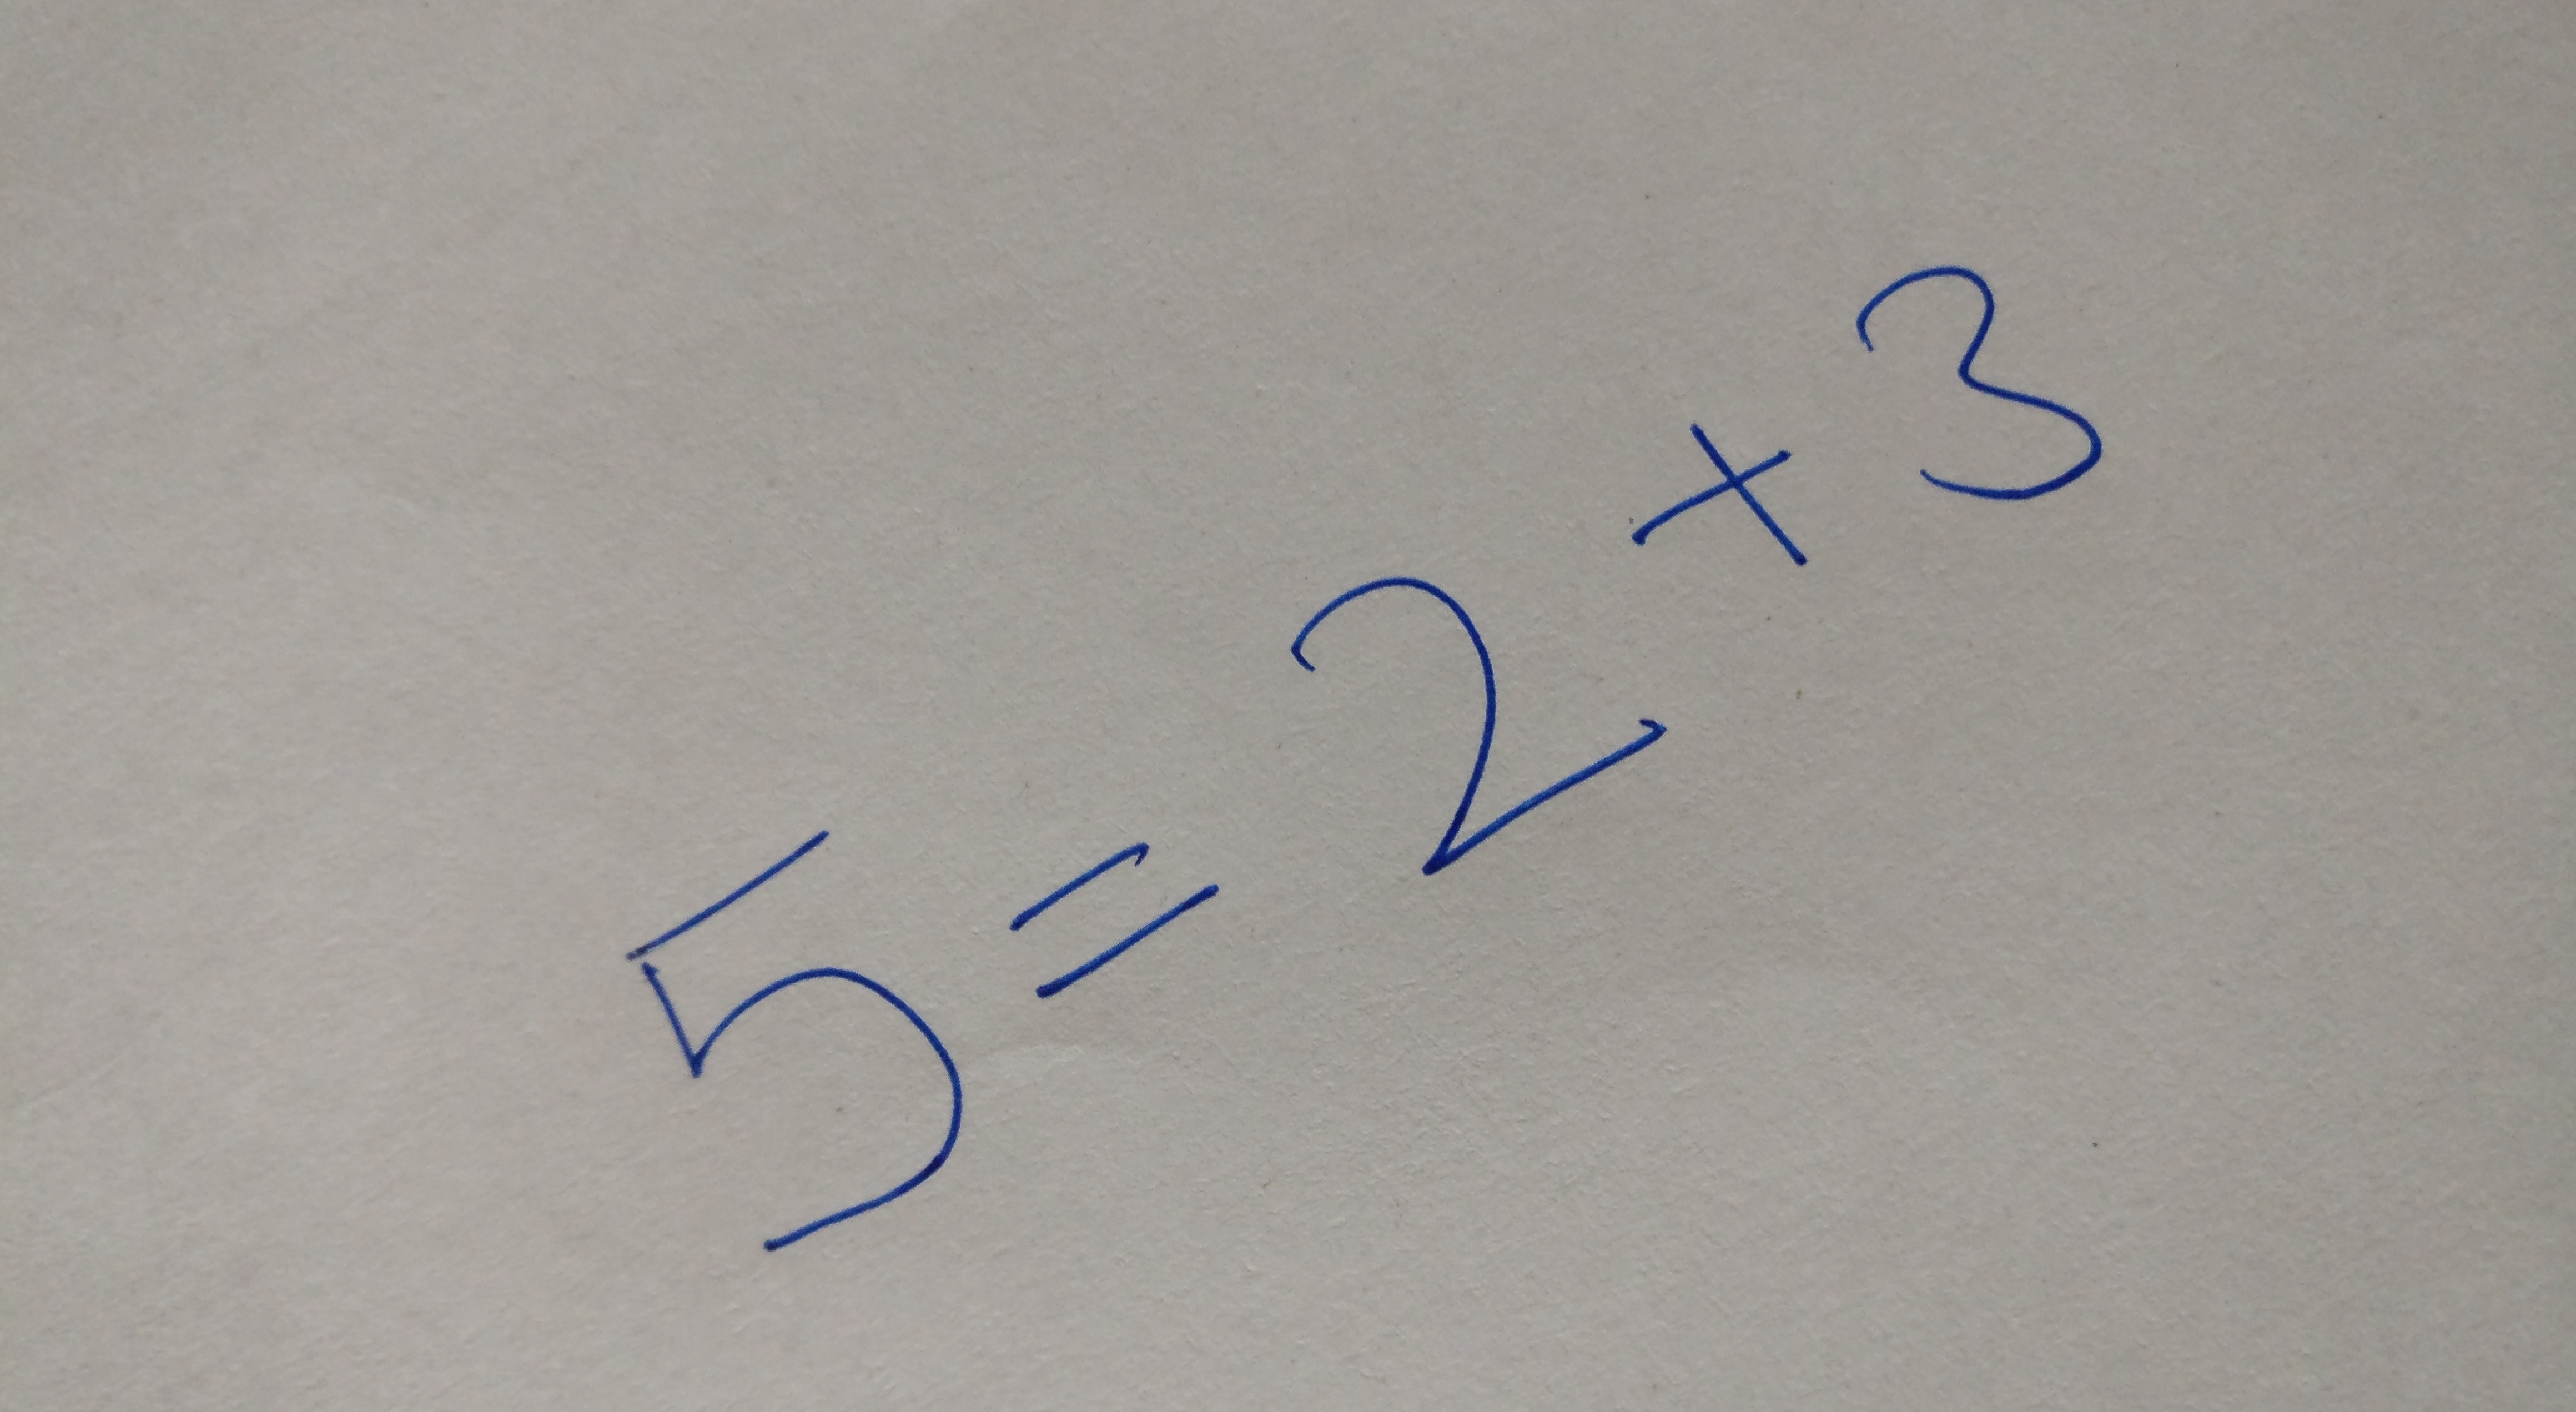 5 = 2 + 3